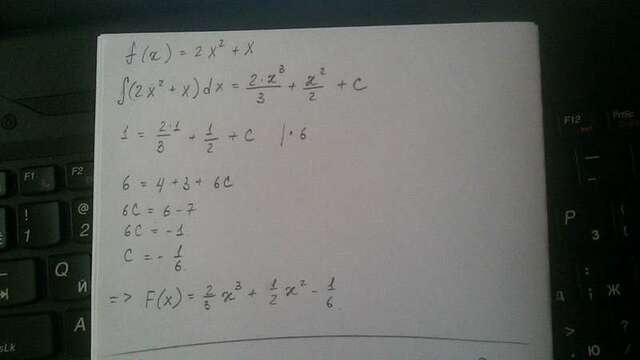 f(x) = 2x² + x
∫(2x² + x)dx = 2·x³/3 + x²/2 + C
1 = 2·1/3 + 1/2 + C |·6
6 = 4 + 3 + 6C
6C = 6 - 7
6C = -1
C = -1/6
=> F(x) = 2/3 x³ + 1/2 x² - 1/6
F1
F2
F12
!
1
@
2
Q
Й
A
P
З
Ж